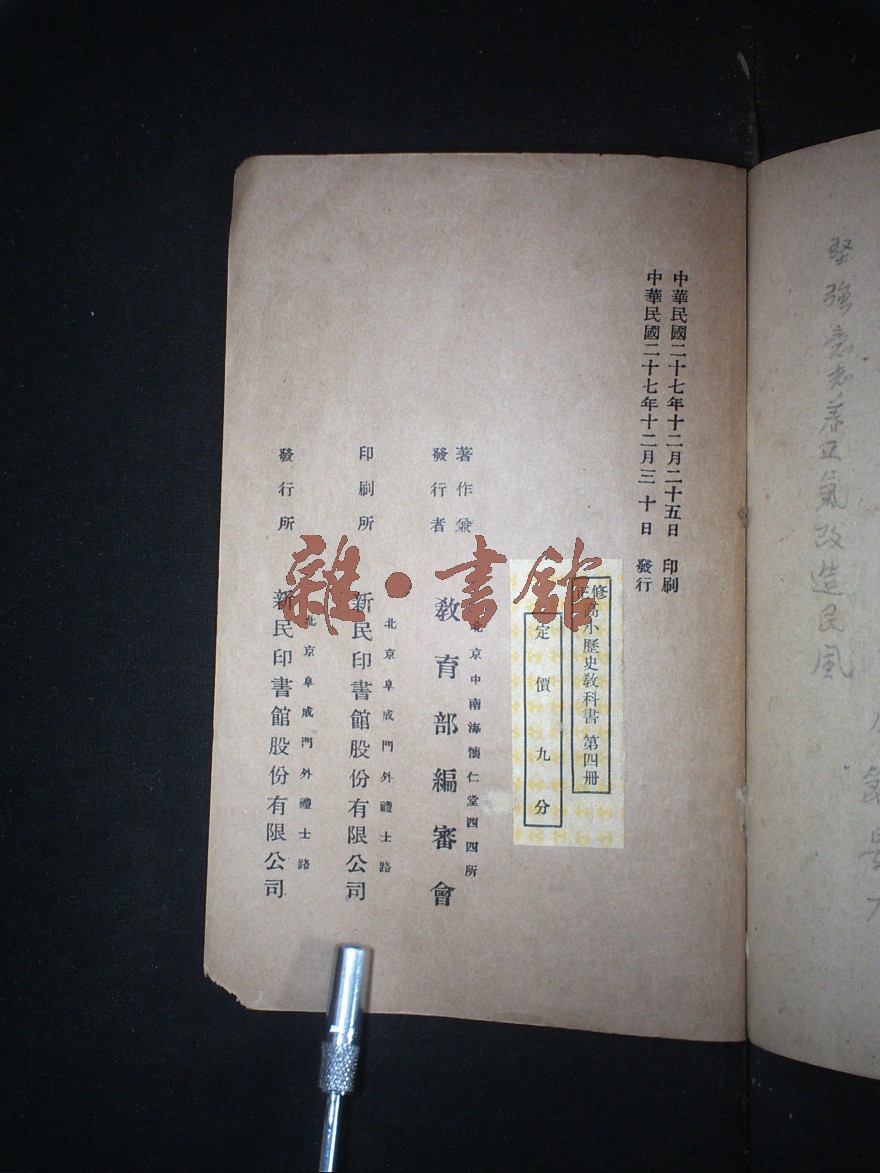 堅強意志養正氣改造民風
中華民國二十七年十二月二十五日 印刷
中華民國二十七年十二月三十日 發行
修正高小歷史教科書 第四册
定價九分
著作兼
發行者
北京中南海懷仁堂西四所
教育部編審會
印刷所
北京阜成門外禮士路
新民印書館股份有限公司
發行所
北京阜成門外禮士路
新民印書館股份有限公司
雜·書館